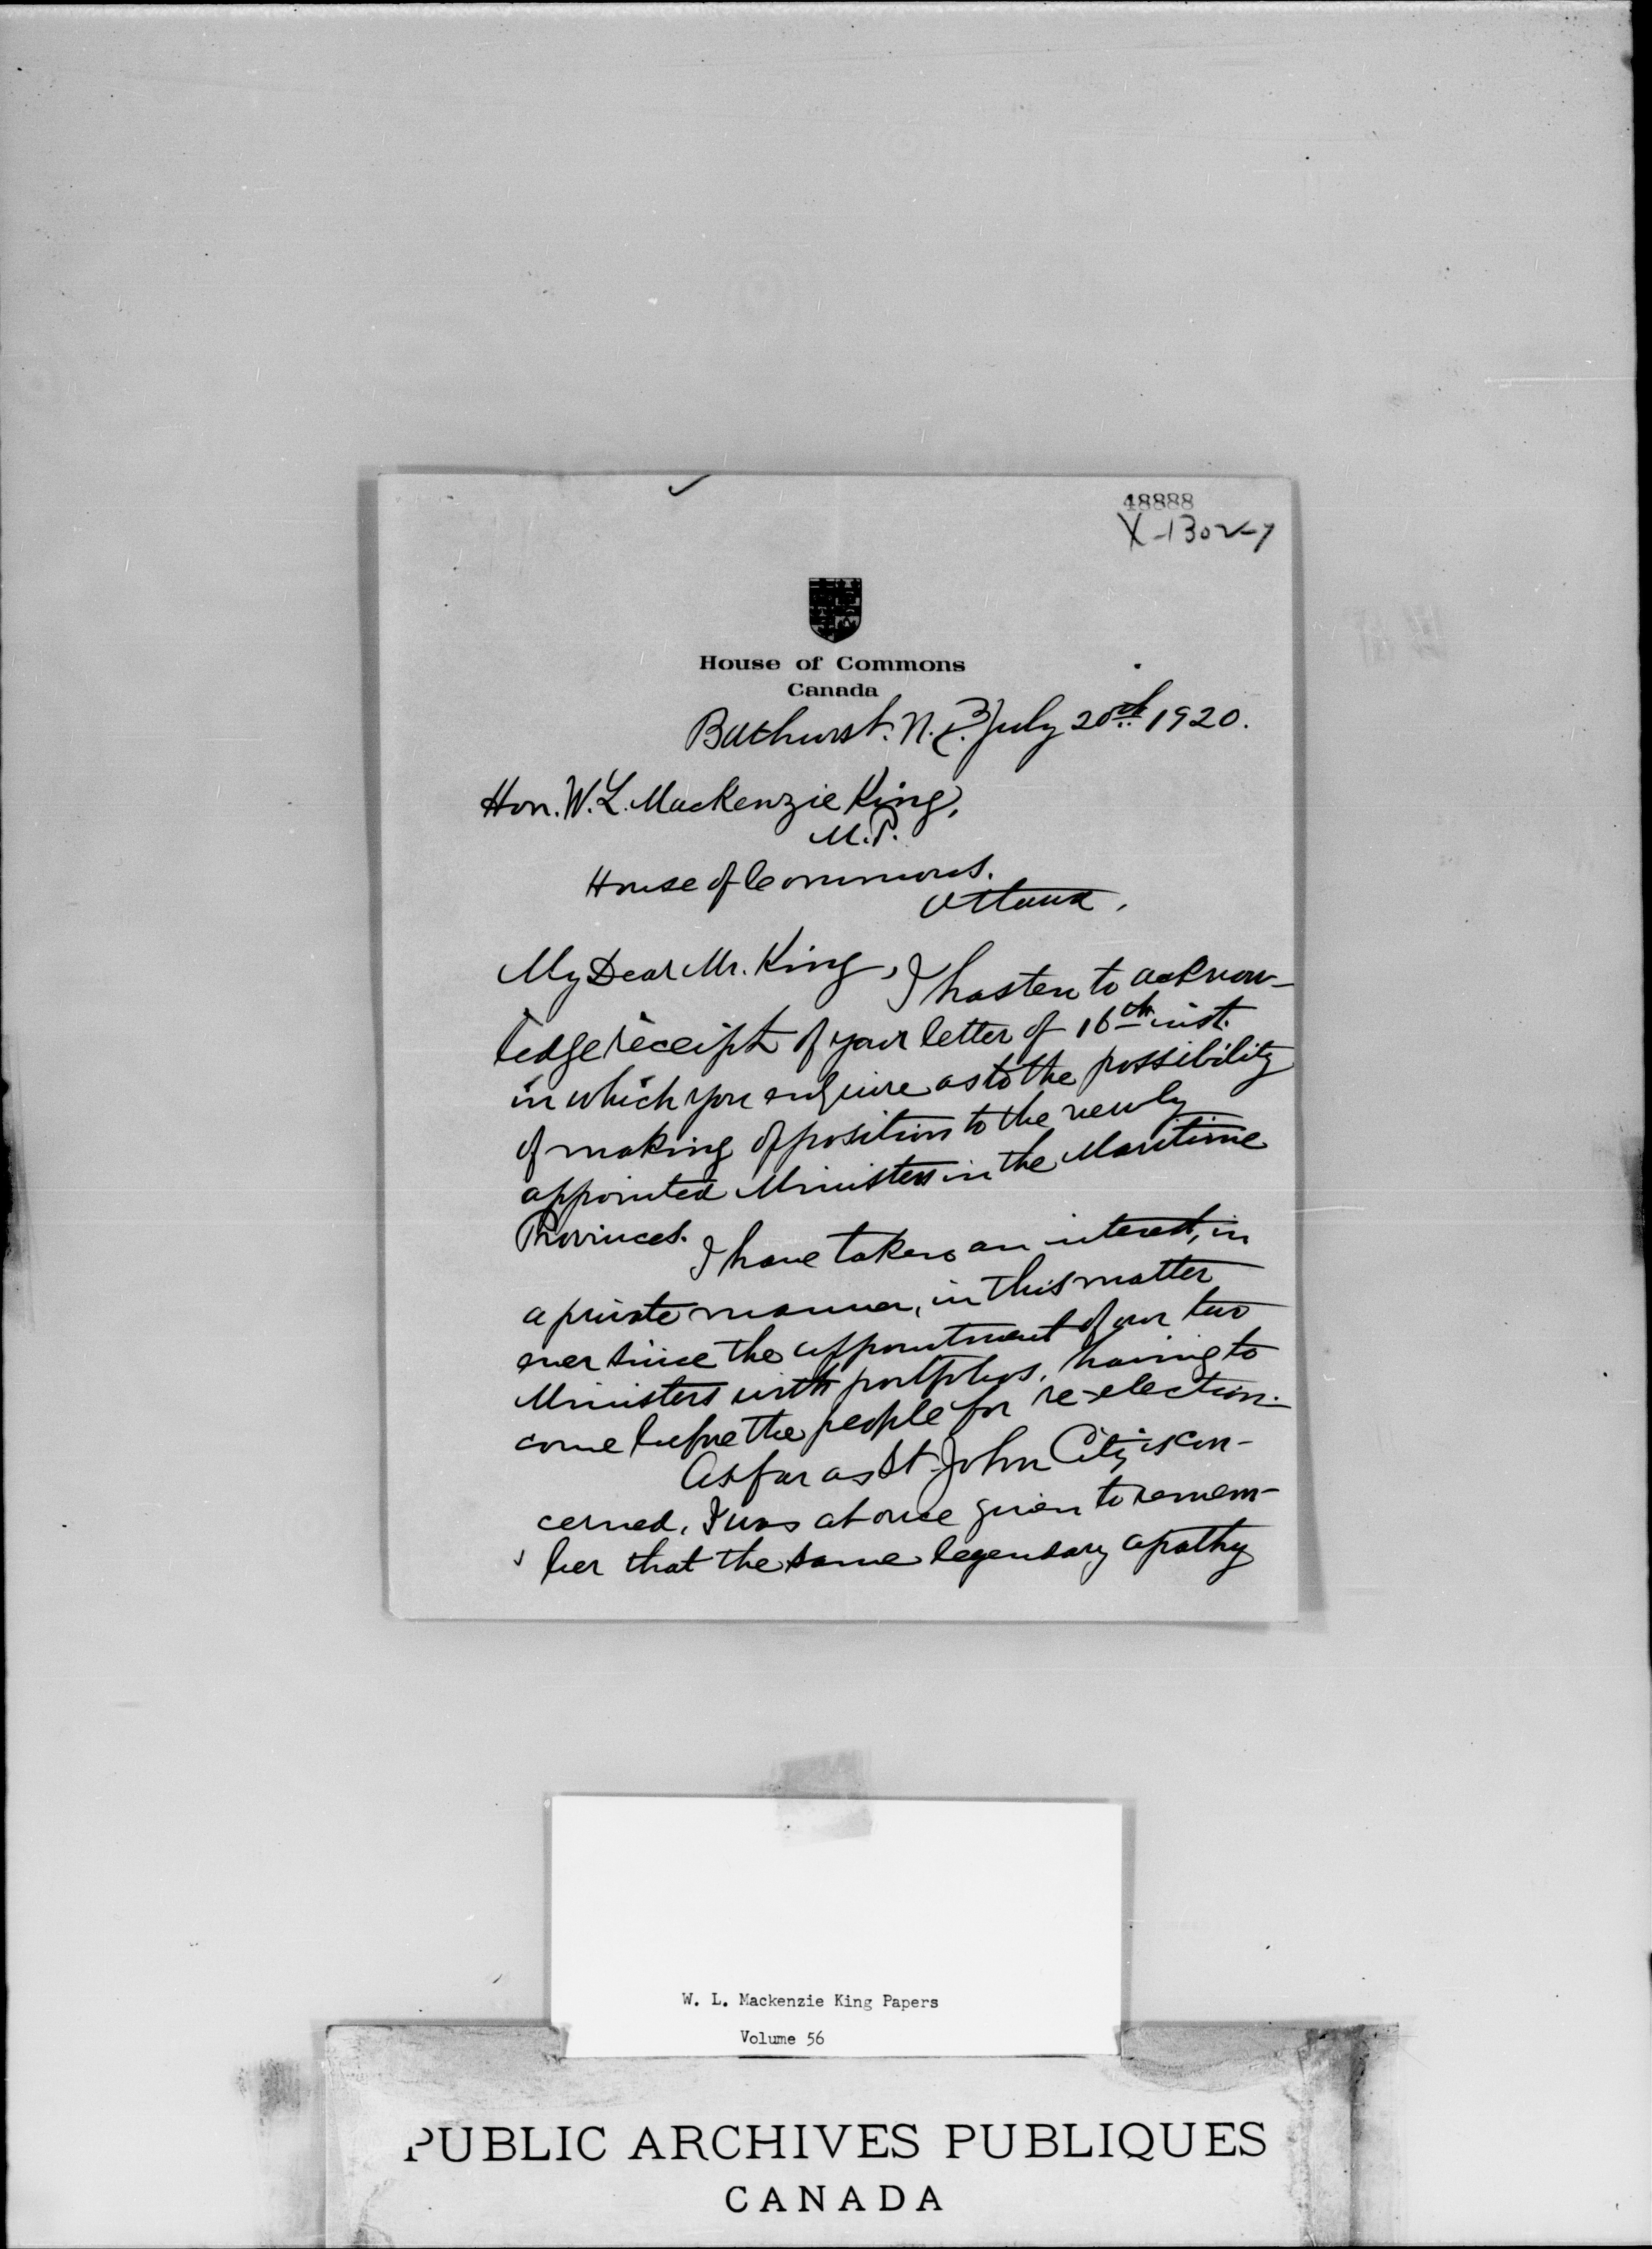 48888
X-1302-7
House of Commons
Canada
Bathurst. N.B. July 20th 1920.
Hon. W. L. Mackenzie King,
M.P.
House of Commons.
Ottawa,
My Dear Mr. King, I hasten to acknow-
ledge receipt of your letter of 16th inst.
in which you enquire as to the possibility
of making opposition to the newly
appointed Ministers in the Maritime
Provinces.
I have taken an interest, in
a private manner, in this matter
ever since the appointment of our two
Ministers with portfolios, having to
come before the people for re-election.
As far as St John City is con-
cerned, I was at once given to remem-
ber that the same legendary apathy
W. L. Mackenzie King Papers
Volume 56
PUBLIC ARCHIVES PUBLIQUES
CANADA